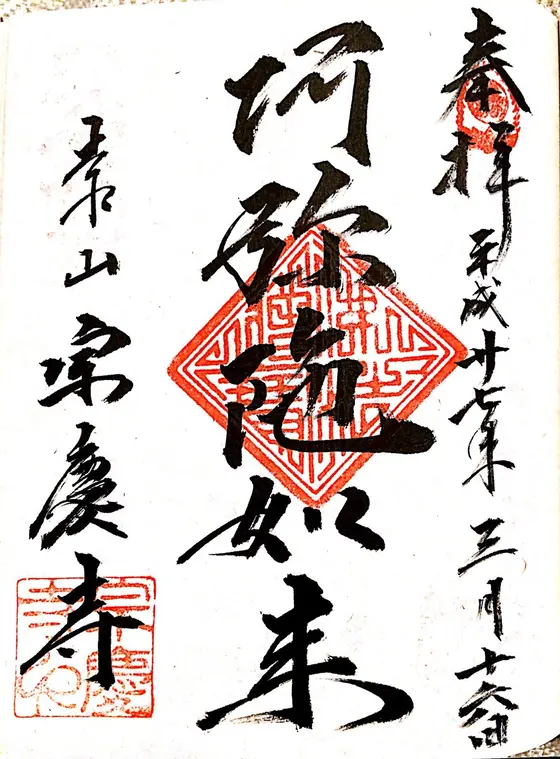 奉拝 平成廿七年三月十六日
阿弥陀如来
山 宗慶寺